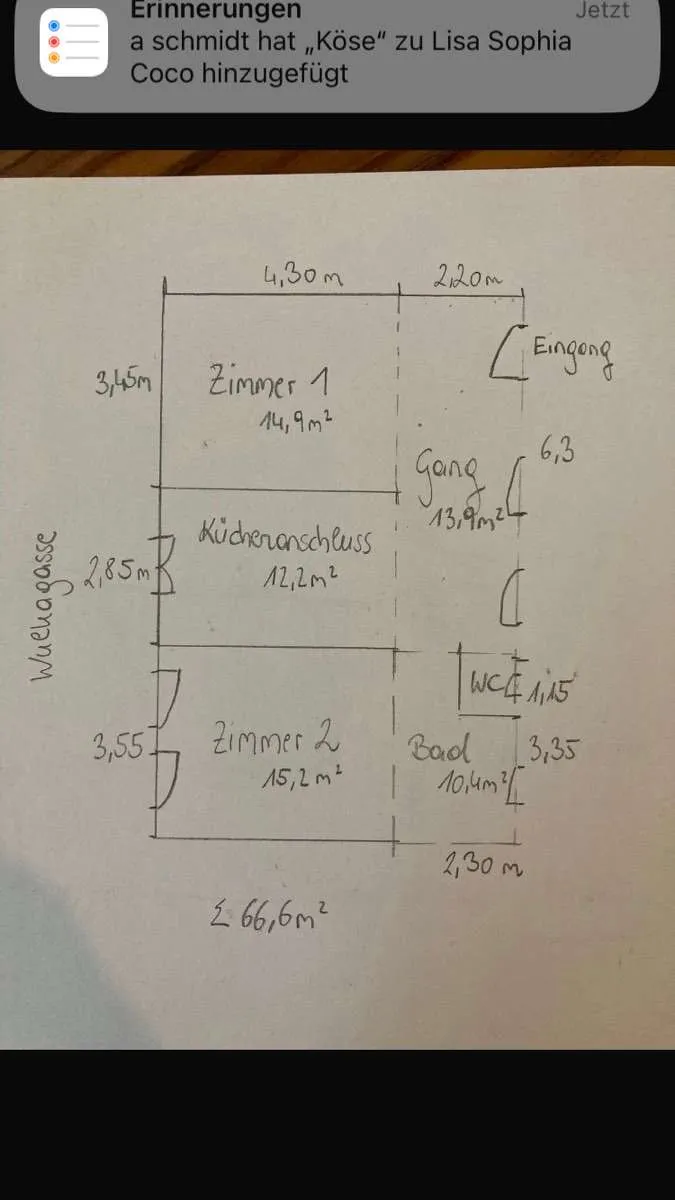 Erinnerungen
Jetzt
a schmidt hat „Köse“ zu Lisa Sophia
Coco hinzugefügt
4,30 m
2,20m
Eingang
3,45m
Zimmer 1
14,9m²
6,3
Gang
13,9m²
Küchenanschluss
12,2m²
2,85m
WC
1,15
3,55
Zimmer 2
15,2m²
Bad
10,4m²
3,35
2,30 m
Σ 66,6m²